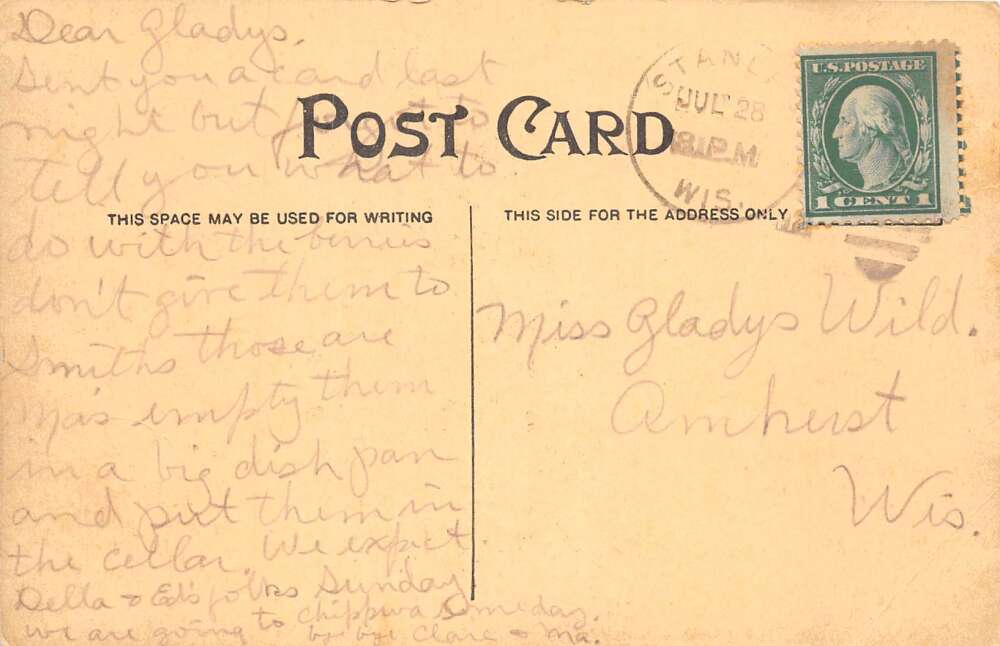 Dear Gladys,
Sent you a card last
night but forgot to
tell you what to
do with the berries
don't give them to
Smiths those are
Ma's empty them
in a big dish pan
and put them in
the cellar. We expect
Della & Ed's folks Sunday
we are going to Chippwa someday.
by bye Clare & Ma.
POST CARD
THIS SPACE MAY BE USED FOR WRITING
THIS SIDE FOR THE ADDRESS ONLY
JUL 28
WIS.
U.S. POSTAGE
1 CENT 1
Miss Gladys Wild.
Amherst
Wis.